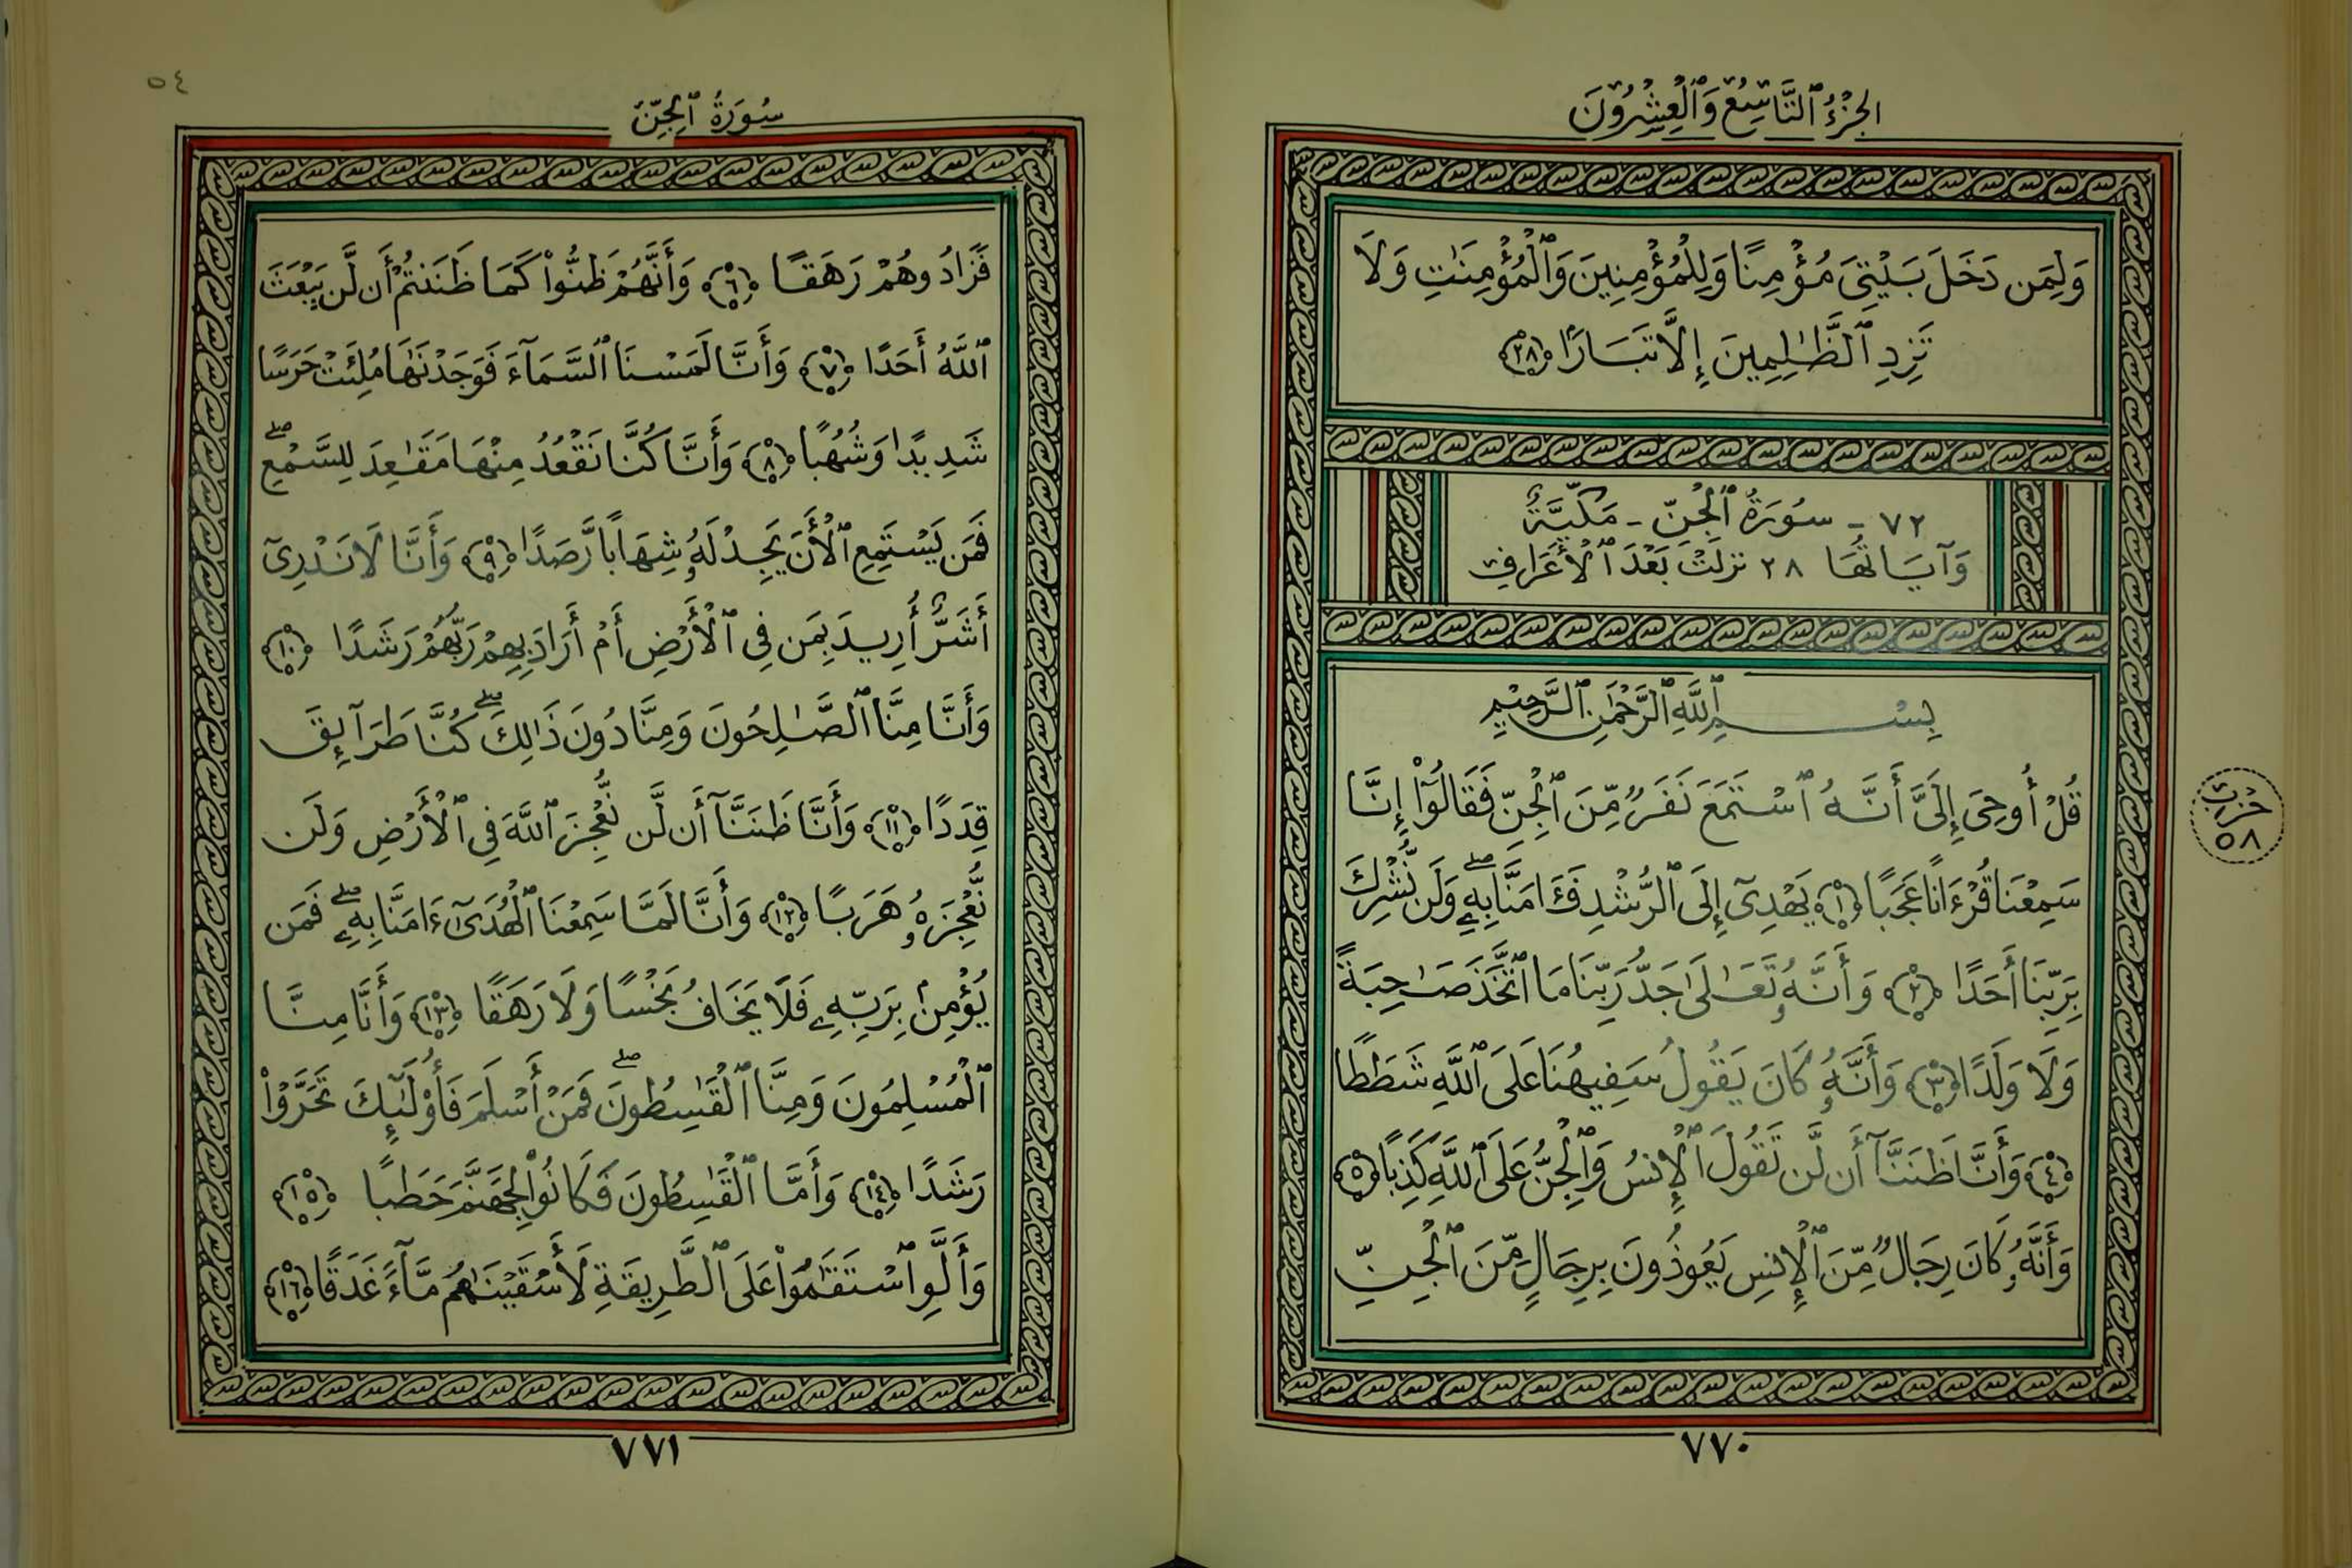 الجُزْءُ ٱلتَّاسِعُ وَٱلْعِشْرُونَ
وَلِمَن دَخَلَ بَيْتِىَ مُؤْمِنًا وَلِلْمُؤْمِنِينَ وَٱلْمُؤْمِنَٰتِ وَلَا
تَزِدِ ٱلظَّٰلِمِينَ إِلَّا تَبَارًۢا ﴿٢٨﴾
٧٢ - سُورَةُ ٱلْجِنِّ - مَكِّيَّةٌ
وَآيَاتُهَا ٢٨ نَزَلَتْ بَعْدَ ٱلْأَعْرَافِ
بِسْمِ ٱللَّهِ ٱلرَّحْمَٰنِ ٱلرَّحِيمِ
قُلْ أُوحِىَ إِلَىَّ أَنَّهُ ٱسْتَمَعَ نَفَرٌ مِّنَ ٱلْجِنِّ فَقَالُوٓا۟ إِنَّا
سَمِعْنَا قُرْءَانًا عَجَبًا ﴿١﴾ يَهْدِىٓ إِلَى ٱلرُّشْدِ فَـَٔامَنَّا بِهِۦ ۖ وَلَن نُّشْرِكَ
بِرَبِّنَآ أَحَدًا ﴿٢﴾ وَأَنَّهُۥ تَعَٰلَىٰ جَدُّ رَبِّنَا مَا ٱتَّخَذَ صَٰحِبَةً
وَلَا وَلَدًا ﴿٣﴾ وَأَنَّهُۥ كَانَ يَقُولُ سَفِيهُنَا عَلَى ٱللَّهِ شَطَطًا
﴿٤﴾ وَأَنَّا ظَنَنَّآ أَن لَّن تَقُولَ ٱلْإِنسُ وَٱلْجِنُّ عَلَى ٱللَّهِ كَذِبًا ﴿٥﴾
وَأَنَّهُۥ كَانَ رِجَالٌ مِّنَ ٱلْإِنسِ يَعُوذُونَ بِرِجَالٍ مِّنَ ٱلْجِنِّ
حِزْب
٥٨
٧٧٠
٥٤
سُورَةُ ٱلْجِنِّ
فَزَادُوهُمْ رَهَقًا ﴿٦﴾ وَأَنَّهُمْ ظَنُّوا۟ كَمَا ظَنَنتُمْ أَن لَّن يَبْعَثَ
ٱللَّهُ أَحَدًا ﴿٧﴾ وَأَنَّا لَمَسْنَا ٱلسَّمَآءَ فَوَجَدْنَٰهَا مُلِئَتْ حَرَسًا
شَدِيدًا وَشُهُبًا ﴿٨﴾ وَأَنَّا كُنَّا نَقْعُدُ مِنْهَا مَقَٰعِدَ لِلسَّمْعِ ۖ
فَمَن يَسْتَمِعِ ٱلْأَنَ يَجِدْ لَهُۥ شِهَابًا رَّصَدًا ﴿٩﴾ وَأَنَّا لَا نَدْرِىٓ
أَشَرٌّ أُرِيدَ بِمَن فِى ٱلْأَرْضِ أَمْ أَرَادَ بِهِمْ رَبُّهُمْ رَشَدًا ﴿١٠﴾
وَأَنَّا مِنَّا ٱلصَّٰلِحُونَ وَمِنَّا دُونَ ذَٰلِكَ ۖ كُنَّا طَرَآئِقَ
قِدَدًا ﴿١١﴾ وَأَنَّا ظَنَنَّآ أَن لَّن نُّعْجِزَ ٱللَّهَ فِى ٱلْأَرْضِ وَلَن
نُّعْجِزَهُۥ هَرَبًا ﴿١٢﴾ وَأَنَّا لَمَّا سَمِعْنَا ٱلْهُدَىٰٓ ءَامَنَّا بِهِۦ ۖ فَمَن
يُؤْمِنۢ بِرَبِّهِۦ فَلَا يَخَافُ بَخْسًا وَلَا رَهَقًا ﴿١٣﴾ وَأَنَّا مِنَّا
ٱلْمُسْلِمُونَ وَمِنَّا ٱلْقَٰسِطُونَ ۖ فَمَنْ أَسْلَمَ فَأُو۟لَٰٓئِكَ تَحَرَّوْا۟
رَشَدًا ﴿١٤﴾ وَأَمَّا ٱلْقَٰسِطُونَ فَكَانُوا۟ لِجَهَنَّمَ حَطَبًا ﴿١٥﴾
وَأَلَّوِ ٱسْتَقَٰمُوا۟ عَلَى ٱلطَّرِيقَةِ لَأَسْقَيْنَٰهُم مَّآءً غَدَقًا ﴿١٦﴾
٧٧١